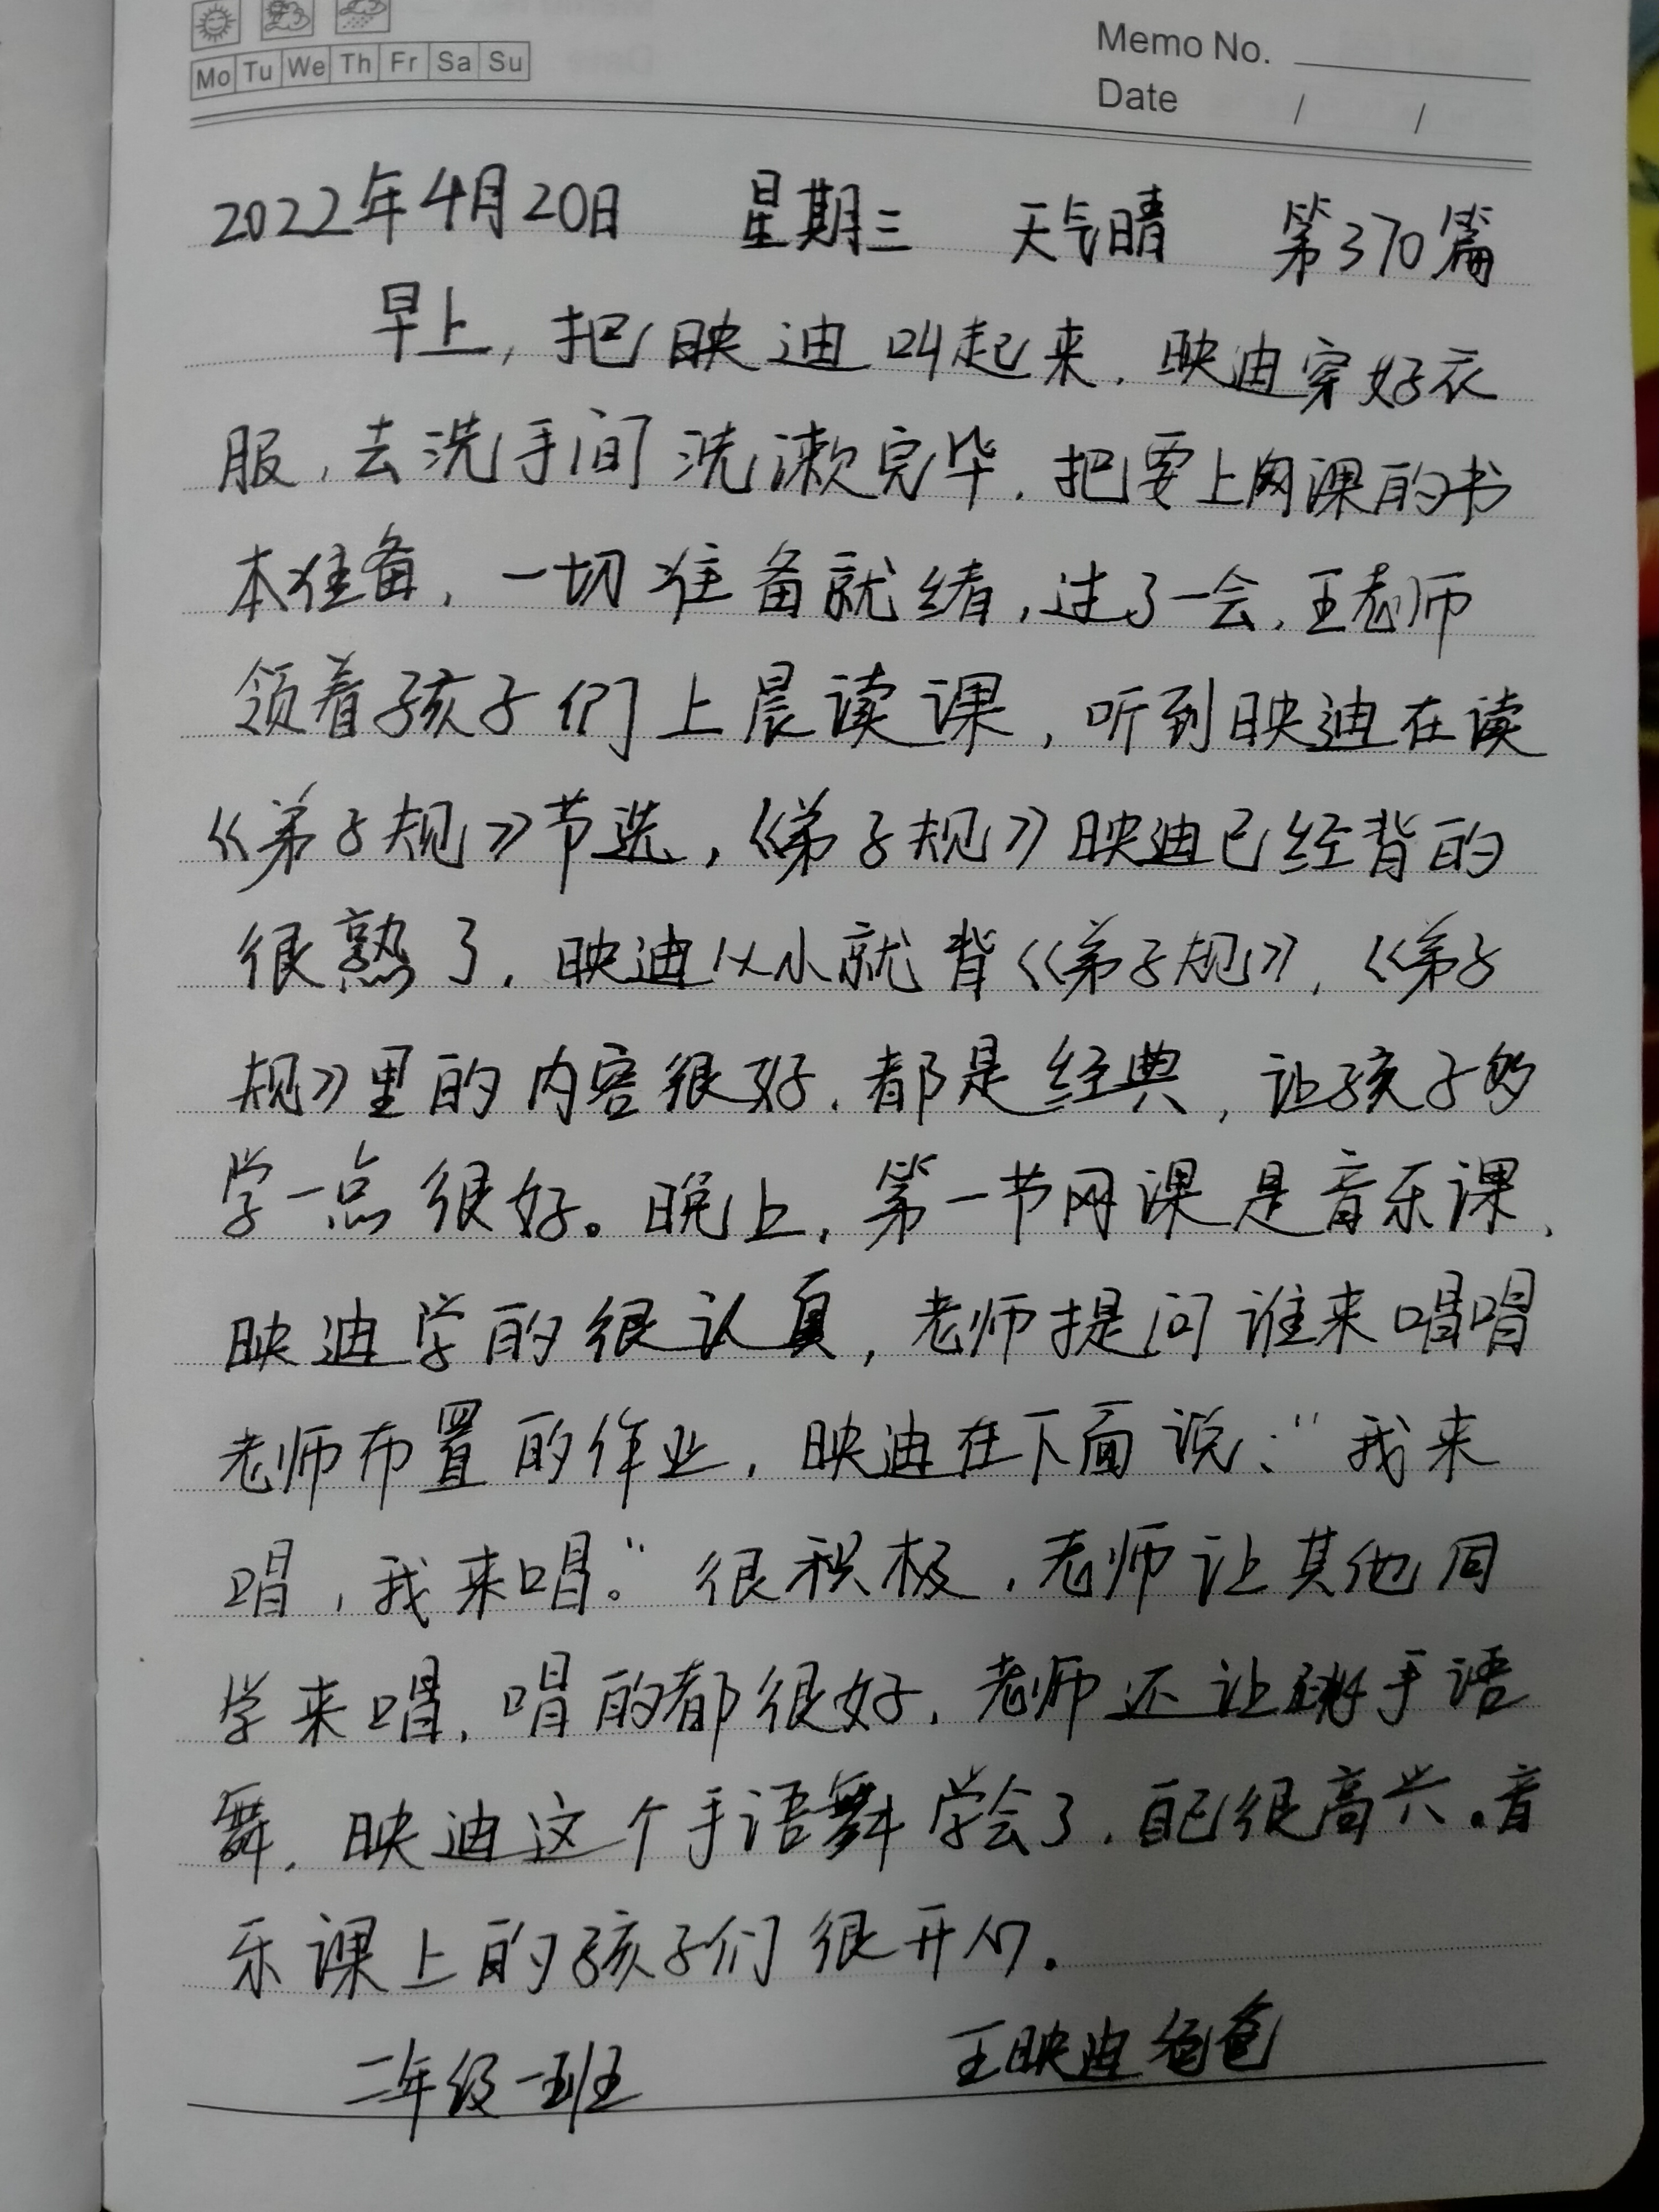 Mo Tu We Th Fr Sa Su
Memo No.
Date / /
2022年4月20日 星期三 天气晴 第370篇
早上，把映迪叫起来，映迪穿好衣
服，去洗手间洗漱完毕，把要上网课的书
本准备，一切准备就绪，过了一会，王老师
领着孩子们上晨读课，听到映迪在读
《弟子规》节选，《弟子规》映迪已经背的
很熟了，映迪从小就背《弟子规》，《弟子
规》里的内容很好，都是经典，让孩子多
学一点很好。晚上，第一节网课是音乐课，
映迪学的很认真，老师提问谁来唱唱
老师布置的作业，映迪在下面说：“我来
唱，我来唱。”很积极，老师让其他同
学来唱，唱的都很好，老师还让跳手语
舞，映迪这个手语舞学会了，自己很高兴。音
乐课上的孩子们很开心.
二年级一班 王映迪爸爸